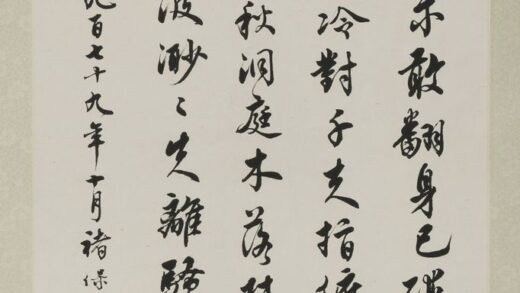 未敢翻身已碰
冷對千夫指俯
秋洞庭木落
波渺〻失離騷
九百七十九年十月褚保